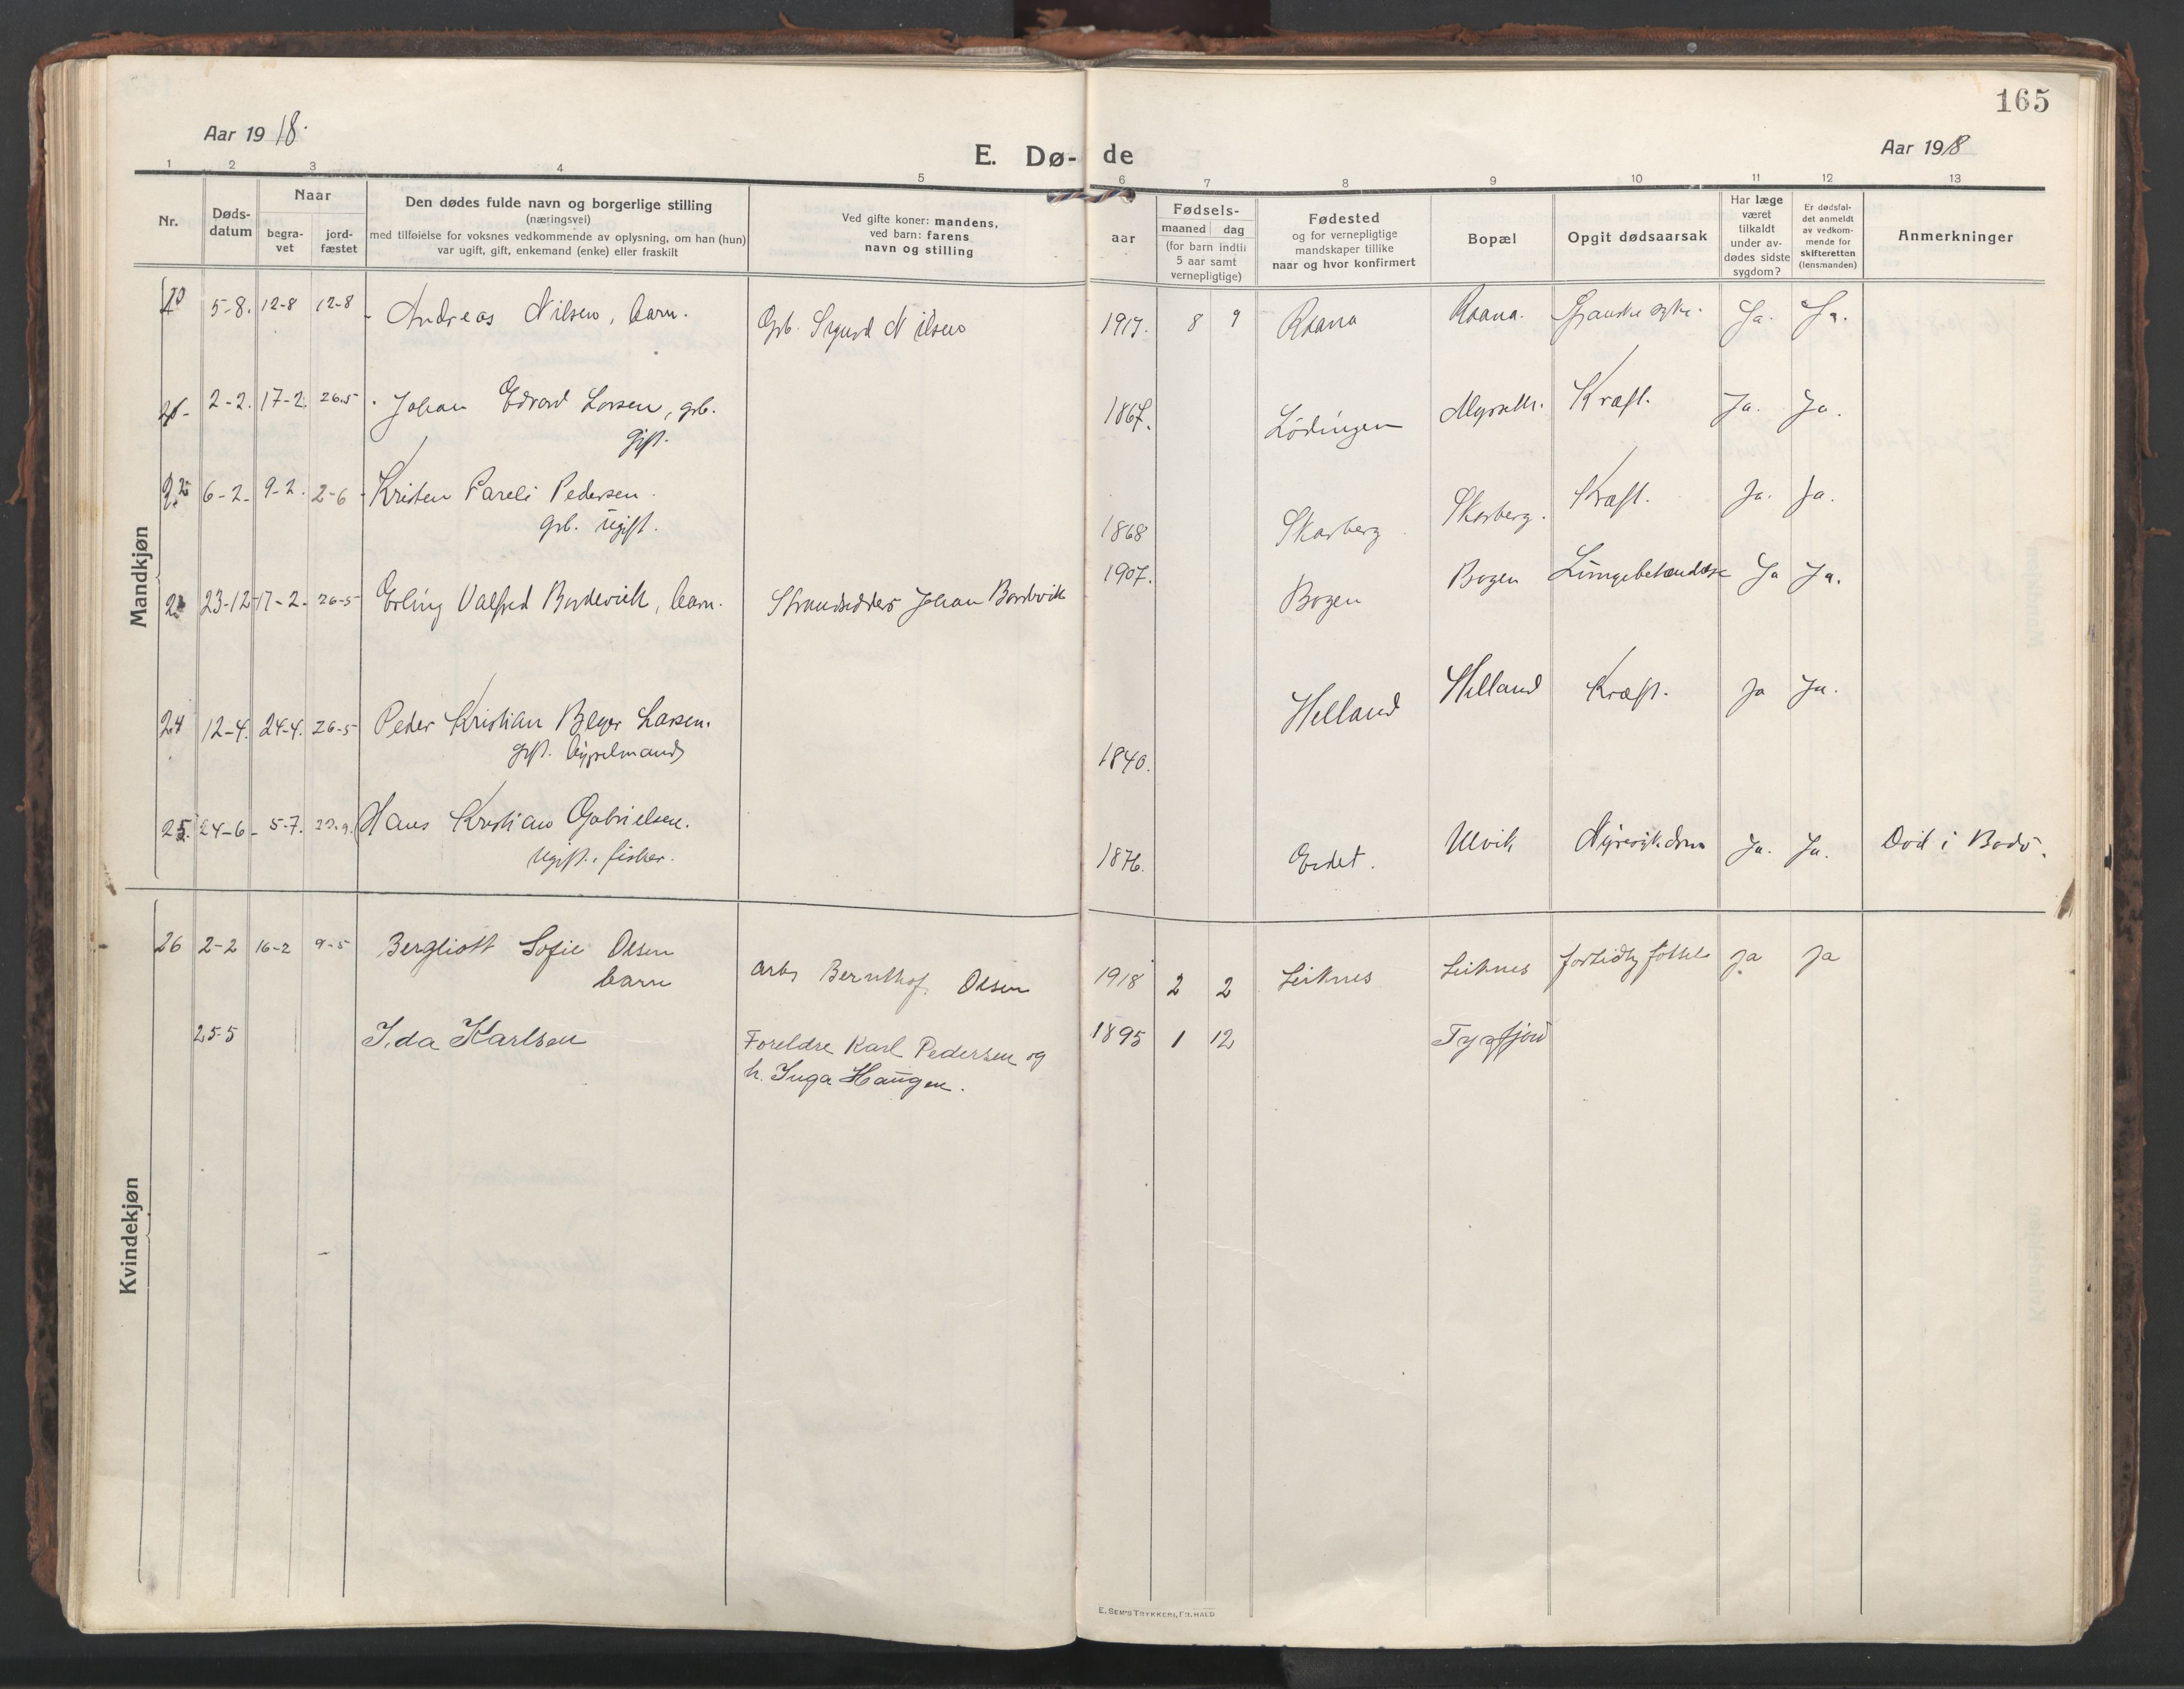 165
Aar 1918.
E. Dø-
de
Aar 1918
1 2 3 4 5 6 7 8 9 10 11 12 13
Nr.
Døds-
datum
Naar
begra-
vet
jord-
fæstet
Den dødes fulde navn og borgerlige stilling
(næringsvei)
med tilføielse for voksnes vedkommende av oplysning, om han (hun)
var ugift, gift, enkemand (enke) eller fraskilt
Ved gifte koner: mandens,
ved barn: farens
navn og stilling
aar
Fødsels-
maaned dag
(for barn indtil
5 aar samt
vernepligtige)
Fødested
og for vernepligtige
mandskaper tillike
naar og hvor konfirmert
Bopæl
Opgit dødsaarsak
Har læge
været
tilkaldt
under av-
dødes sidste
sygdom?
Er dødsfal-
det anmeldt
av vedkom-
mende for
skifteretten
(lensmanden)
Anmerkninger
Mandkjøn
5-8. 12-8 12-8 Andreas Nilsen, barn. Grb. Sigurd Nilsen 1917. 8 9 Raana Raana. Spanske syke. Ja. Ja.
2-2. 17-2. 26.5 Johan Edvard Larsen, grb. 1867. Lödingen Kræft. Ja. Ja.
gift.
22 6-2. 9-2. 2-6 Kristen Pareli Pedersen. 1868 Skarberg Skarberg. Kræft. Ja. Ja.
grb. ugift.
23-12 17-2. 26-5 Erling Valfred Bordevick, barn. Strandsidder Johan Bordvik 1907. Bogen Bogen Lungebetændelse Ja Ja.
24 12-4. 24-4. 26-5 Peder Kristian Larsen. 1840. Helland Helland Kræft. Ja Ja.
gift.
25. 24-6- 5-7. Hans Kristian Gabrielsen. 1876. Eidet. Ulvik Nyresykdom Ja. Ja. Död i Bodö.
ugift. fisker.
Kvindekjøn
26 2-2 16-2 9-5 Bergliott Sofie Olsen Arb. Bernthof Olsen 1918 2 2 Leiknes Leiknes for tidlig fötsel ja ja
barn
25-5 Ida Karlsen Foreldre Karl Pedersen og 1895 1 12 Tysfjord
h. Inga Haugen.
E. SEM'S TRYKKERI, FR. HALD